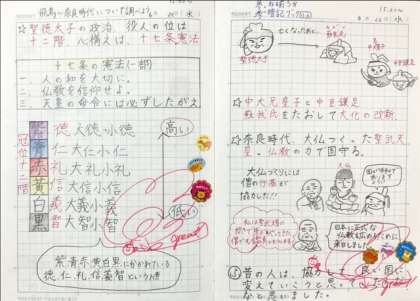 飛鳥〜奈良時代について調べよう。
☆聖徳太子の政治、役人の位は
十二階、心構えは、十七条憲法
十七条の憲法(一部)
一、人の和を大切に。
二、仏教を信仰せよ。
三、天皇の命令には必ずしたがえ
冠位十二階
紫 徳 大徳小徳
青 仁 大仁小仁
赤 礼 大礼小礼
黄 信 大信小信
白 義 大義小義
黒 智 大智小智
高い
低い
great
紫青赤黄白黒にかかれている
徳、仁、礼、信、義、智
という順
聖徳太子
☆中大兄皇子と中臣鎌足
蘇我氏をたおして大化の改新。
☆奈良時代、大仏つくった聖武天
皇。仏教の力で国守る。
大仏づくりには
僧の行基が
協力した!!
日本に正式な
仏教を広めるために
来日しました
昔の人は、協力して、良い国に
変えていこうと思って
なと思いました。